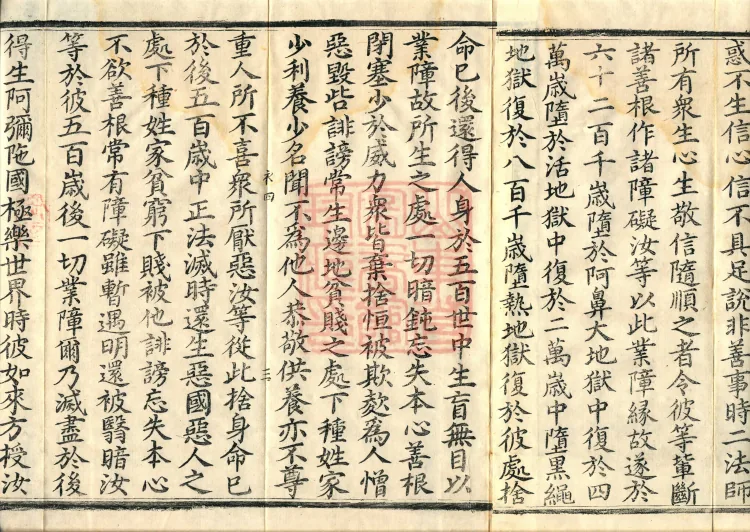 惑不生信心信不具足說非善事時二法師
所有衆生心生敬信隨順之者令彼等輩斷
諸善根作諸障礙汝等以此業障緣故遂於
六十二百千歲墮於阿鼻大地獄中復於四
萬歲墮於活地獄中復於二萬歲中墮黑繩
地獄復於八百千歲墮熱地獄復於彼處捨
命已後還得人身於五百世中生盲無目以
業障故所生之處一切暗鈍忘失本心善根
閉塞少於威力衆皆棄捨恒被欺㱇為人憎
惡毀呰誹謗常生邊地貧賤之處下種姓家
少利養少名聞不為他人恭敬供養亦不尊
衣四
三
重人所不喜衆所厭惡汝等從此捨身命已
於後五百歲中正法滅時還生惡國惡人之
處下種姓家貧窮下賤被他誹謗忘失本心
不欲善根常有障礙雖暫遇明還被翳暗汝
等於彼五百歲後一切業障爾乃滅盡於後
得生阿彌陁國極樂世界時彼如來方授汝